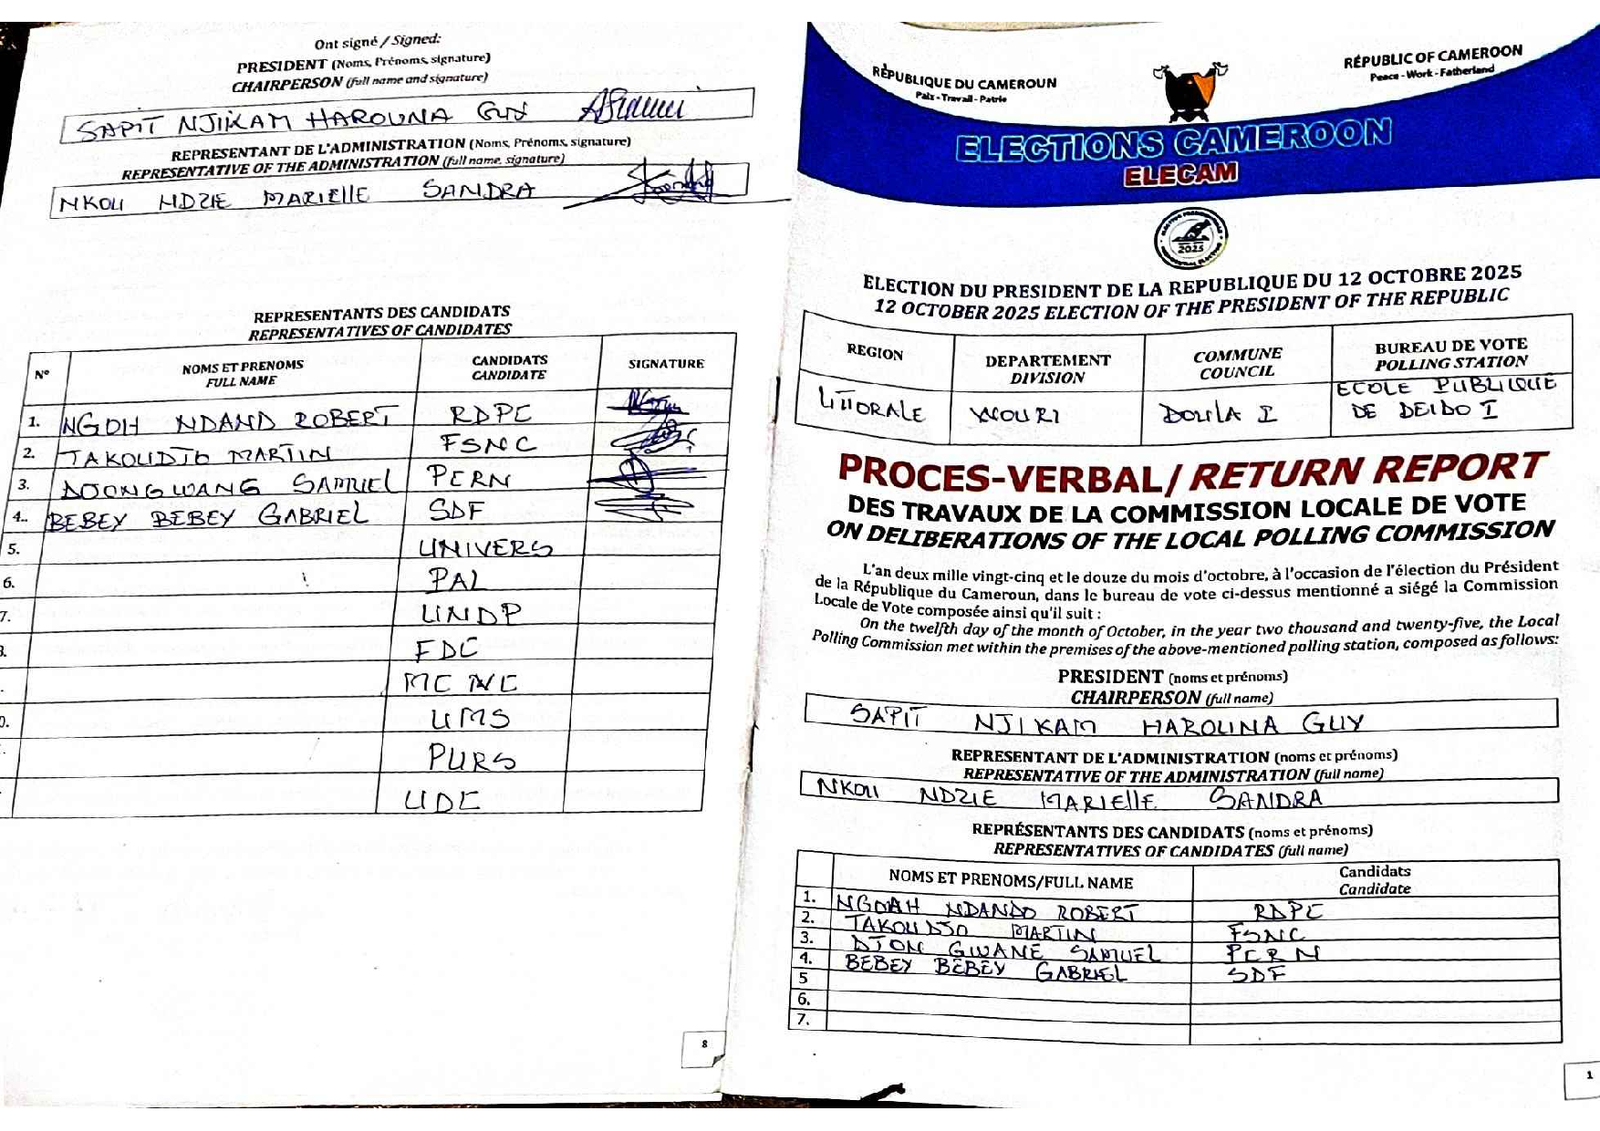 Ont signé / Signed:
PRESIDENT (Noms, Prénoms, signature)
CHAIRPERSON (full name and signature)
SAPIT NJIKAM HAROUNA GUY
REPRESENTANT DE L'ADMINISTRATION (Noms, Prénoms, signature)
REPRESENTATIVE OF THE ADMINISTRATION (full name, signature)
NKOU NDZIE MARIELLE SANDRA
REPRESENTANTS DES CANDIDATS
REPRESENTATIVES OF CANDIDATES
N° NOMS ET PRENOMS FULL NAME CANDIDATS CANDIDATE SIGNATURE
1. NGOH NDAND ROBERT RDPC
2. TAKOUDJO MARTIN FSNC
3. DJONGWANG SAMUEL PERN
4.. BEBEY BEBEY GABRIEL SDF
5. UNIVERS
6. PAL
7. UNDP
FDC
MCNC
UMS
PURS
UDC
8
RÉPUBLIQUE DU CAMEROUN
Paix - Travail - Patrie
RÉPUBLIC OF CAMEROON
Peace - Work - Fatherland
ELECTIONS CAMEROON
ELECAM
2025
ELECTION DU PRESIDENT DE LA REPUBLIQUE DU 12 OCTOBRE 2025
12 OCTOBER 2025 ELECTION OF THE PRESIDENT OF THE REPUBLIC
REGION DEPARTEMENT DIVISION COMMUNE COUNCIL BUREAU DE VOTE POLLING STATION
LITTORALE WOURI DOUALA I ECOLE PUBLIQUE
DE DEIDO I
PROCES-VERBAL/ RETURN REPORT
DES TRAVAUX DE LA COMMISSION LOCALE DE VOTE
ON DELIBERATIONS OF THE LOCAL POLLING COMMISSION
L'an deux mille vingt-cinq et le douze du mois d'octobre, à l'occasion de l'élection du Président
de la République du Cameroun, dans le bureau de vote ci-dessus mentionné a siégé la Commission
Locale de Vote composée ainsi qu'il suit :
On the twelfth day of the month of October, in the year two thousand and twenty-five, the Local
Polling Commission met within the premises of the above-mentioned polling station, composed as follows:
PRESIDENT (noms et prénoms)
CHAIRPERSON (full name)
SAPIT NJIKAM HAROUNA GUY
REPRESENTANT DE L'ADMINISTRATION (noms et prénoms)
REPRESENTATIVE OF THE ADMINISTRATION (full name)
NKOU NDZIE MARIElle SANDRA
REPRÉSENTANTS DES CANDIDATS (noms et prénoms)
REPRESENTATIVES OF CANDIDATES (full name)
NOMS ET PRENOMS/FULL NAME Candidats Candidate
1. NGOAH NDANDO ROBERT RDPC
2. TAKOUDJO MARTIN FSNC
3. DJON GWANE SAMUEL PERN
4. BEBEY BEBEY GABRIEL SDF
5
6.
7.
1